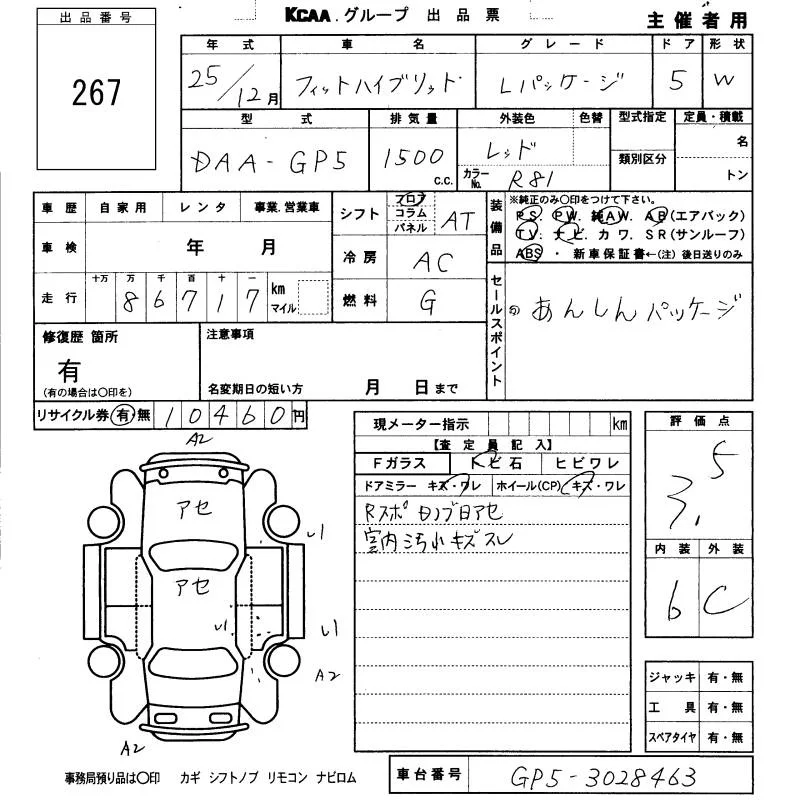 出品番号
267
KCAA.グループ 出品票
主催者用
年式 車名 グレード ドア 形状
25/12月 フィットハイブリッド Lパッケージ 5 W
型式 排気量 外装色 色替 型式指定 定員・積載
DAA-GP5 1500 c.c. レッド 名
カラーNo. R81 類別区分 トン
車歴 自家用 レンタ 事業.営業車
車検 年 月
走行 十万 万 千 百 十 一
8 6 7 1 7 km マイル
シフト フロア コラム パネル AT
冷房 AC
燃料 G
装備品
※純正のみ○印をつけて下さい。
PS. PW. 純AW. AB(エアバック)
TV. ナビ. カワ. SR(サンルーフ)
ABS ・ 新車保証書←(注) 後日送りのみ
セールスポイント
あんしんパッケージ
修復歴 箇所
有
(有の場合は○印を)
注意事項
名変期日の短い方 月 日まで
リサイクル券 有・無 10460円
現メーター指示 km
【査定員記入】
Fガラス トビ石 ヒビワレ
ドアミラー キズ・ワレ ホイール(CP) キズ・ワレ
室内汚れキズスレ
評価点
3.5
内装 外装
6 C
A2
アセ
アセ
A2
A2
ジャッキ 有・無
工具 有・無
スペアタイヤ 有・無
事務局預り品は○印 カギ シフトノブ リモコン ナビロム
車台番号 GP5-3028463